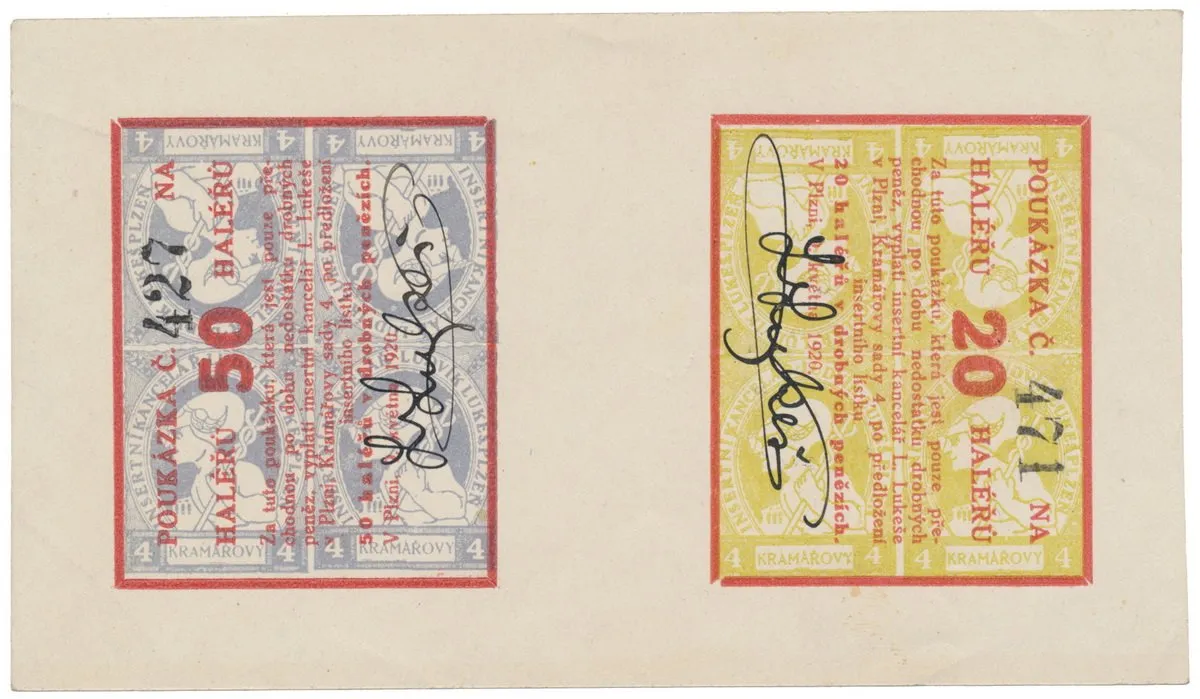 POUKÁZKA Č. 427 NA
HALÉŘŮ 50 HALÉŘŮ
Za tuto poukázku, která jest pouze pře-
chodnou po dobu nedostatku drobných
peněz, vyplatí insertní kancelář L. Lukeše
v Plzni, Kramářovy sady 4, po předložení
insertního lístku
50 haléřů v drobných penězích.
V Plzni, května 1920.
INSERTNÍ KANCELÁŘ LUDVÍK LUKEŠ PLZEŇ
4 KRAMÁŘOVY 4
4 KRAMÁŘOVY
4 KRAMÁŘOVY 4
4 KRAMÁŘOVY
POUKÁZKA Č. 471 NA
HALÉŘŮ 20 HALÉŘŮ
Za tuto poukázku, která jest pouze pře-
chodnou po dobu nedostatku drobných
peněz, vyplatí insertní kancelář L. Lukeše
v Plzni, Kramářovy sady 4, po předložení
insertního lístku
20 haléřů v drobných penězích.
V Plzni, května 1920.
INSERTNÍ KANCELÁŘ LUDVÍK LUKEŠ PLZEŇ
4 KRAMÁŘOVY 4
4 KRAMÁŘOVY 4
4 KRAMÁŘOVY 4
4 KRAMÁŘOVY 4